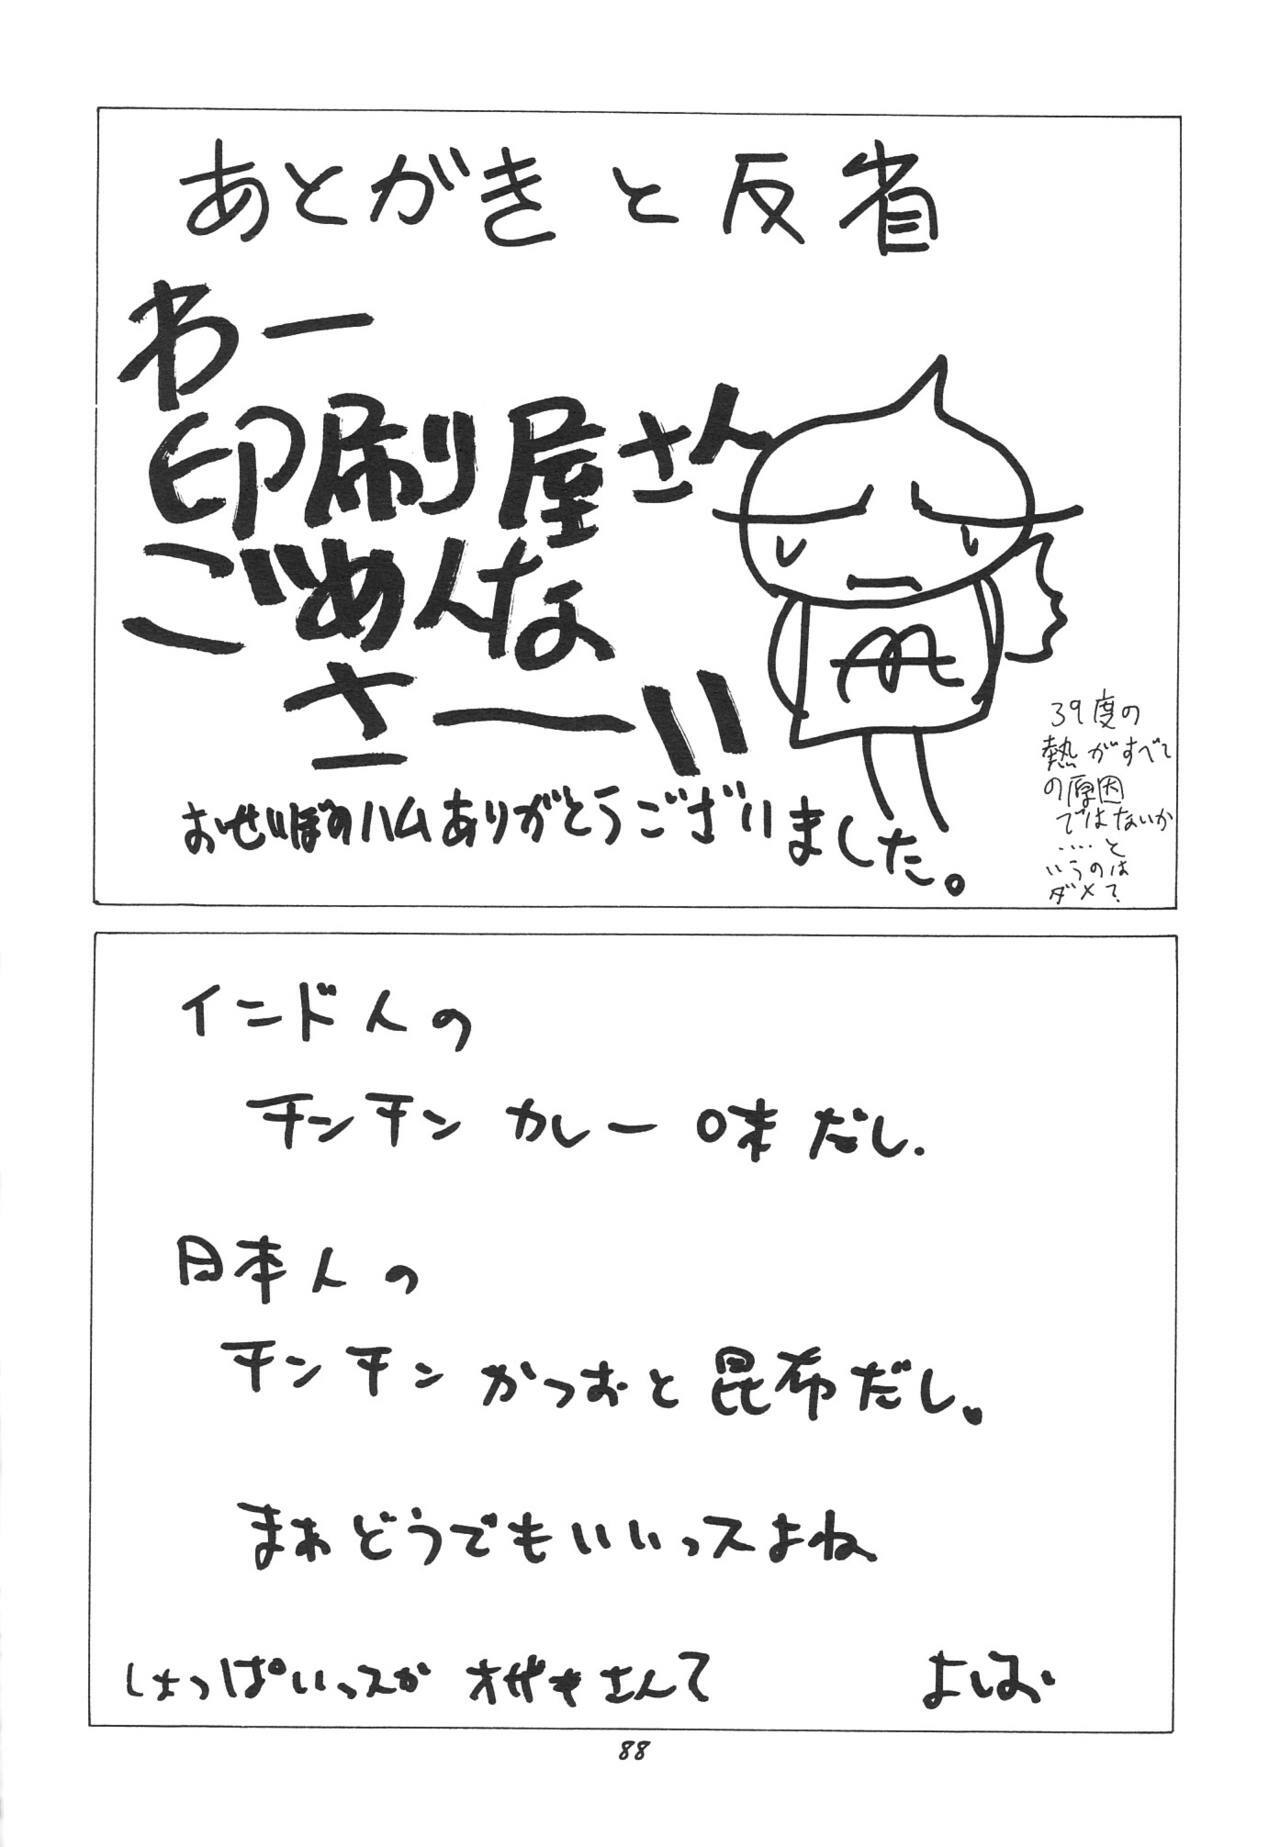 あとがきと反省
わー
印刷屋さん
ごめんな
さーい
おせいぼのハムありがとうございました。
39度の
熱がすべて
の原因
ではないか
‥‥と
いうのは
ダメ?
インド人の
チンチン カレー味だし.
日本人の
チンチン かつおと昆布だし。
まぁどうでもいいっスよね
しょっぱいっスか オザキさんて
よしお
88